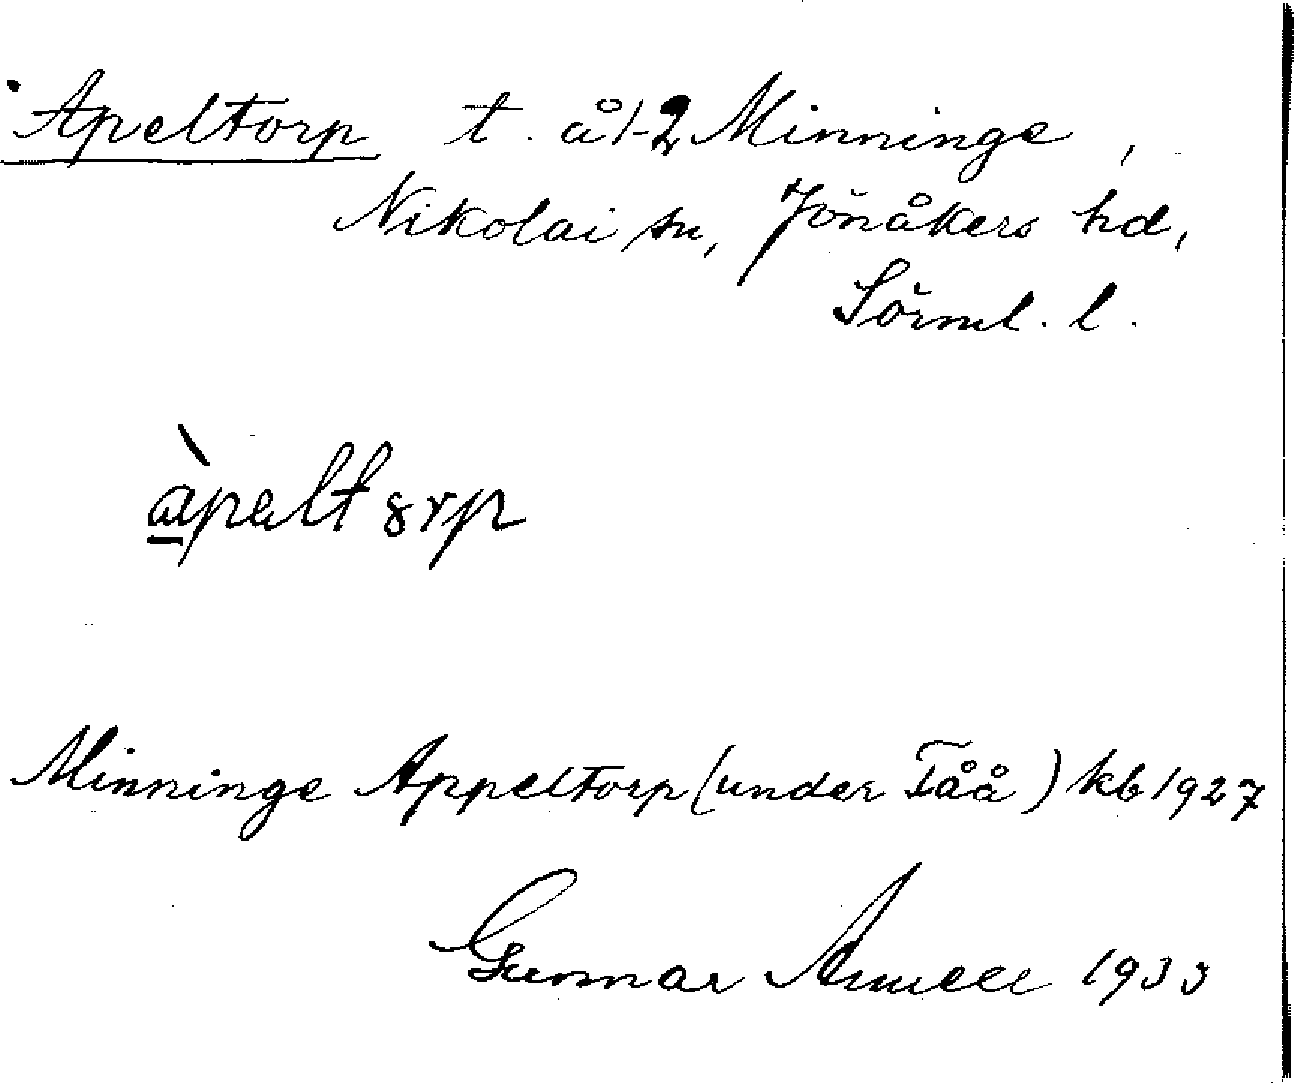 Apeltorp t. å 1-2 Minninge,
Nikolai sn, Jönåkers hd,
Sörml. l.
àpaltørp
Minninge Appeltorp (under Tåå) kb 1927
Gunnar Annell 1933